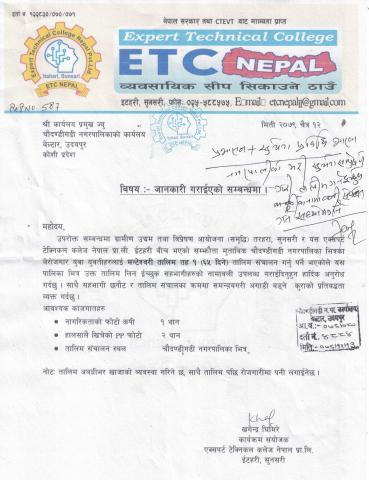 दर्ता नं १९९६३०/०७०/०७१
नेपाल सरकार तथा CTEVT बाट मान्यता प्राप्त
Expert Technical College Nepal Pvt.Ltd
Itahari, Sunsari
ETC NEPAL
Expert Technical College
ETC NEPAL
व्यवसायिक सीप सिकाउने ठाउँ
इटहरी, सुनसरी, फोन: ०२५-५८८५५९, Email etcnepalp@gmail.com
Ref No. 587
श्री कार्यालय प्रमुख ज्यु
चौदण्डीगढी नगरपालिकाको कार्यालय
बेल्टार, उदयपुर
कोशी प्रदेश
मिती २०७९, चैत्र १२
विषय :- जानकारी गराईएको सम्बन्धमा।
महोदय,
उपरोक्त सम्बन्धमा ग्रामीण उद्यम तथा विप्रेषण आयोजना (समृद्धि) तरहरा, सुनसरी र यस एक्सपर्ट
टेक्निकल कलेज नेपाल प्रा.ली. ईटहरी बीच भएको सम्झौता मुताबिक चौदण्डीगढी नगरपालिका भित्रका
बेरोजगार युवा युवतीहरुलाई मन्टेश्वरी तालिम तह १ (६५ दिने) तालिम संचालन गर्नु पर्ने भएकोले यस
पालिका भित्र उक्त तालिम लिन ईच्छुक सहभागीहरुको नामावली उपलब्ध गराईदिनुहुन हार्दिक अनुरोध
गर्दछु। साथै सहभागी छनौट र तालिम संचालनका क्रममा समन्वयसंगी अगाडी बढ्ने कुराको प्रतिबद्धता
व्यक्त गर्दछु।
आवश्यक कागजातहरु
• नागरिकताको फोटो कपी १ थान
• हालसालै खिचेको PP फोटो २ थान
• तालिम संचालन स्थल चौदण्डीगढी नगरपालिका भित्र
बेल्टार, उदयपुर
नोट: तालिम अवधीभर खाजाको व्यवस्था गरिने छ, साथै तालिम पछि रोजगारीमा पनी लगाईनेछ।
खगेन्द्र घिमिरे
कार्यक्रम संयोजक
एक्सपर्ट टेक्निकल कलेज नेपाल प्रा.लि.
ईटहरी, सुनसरी